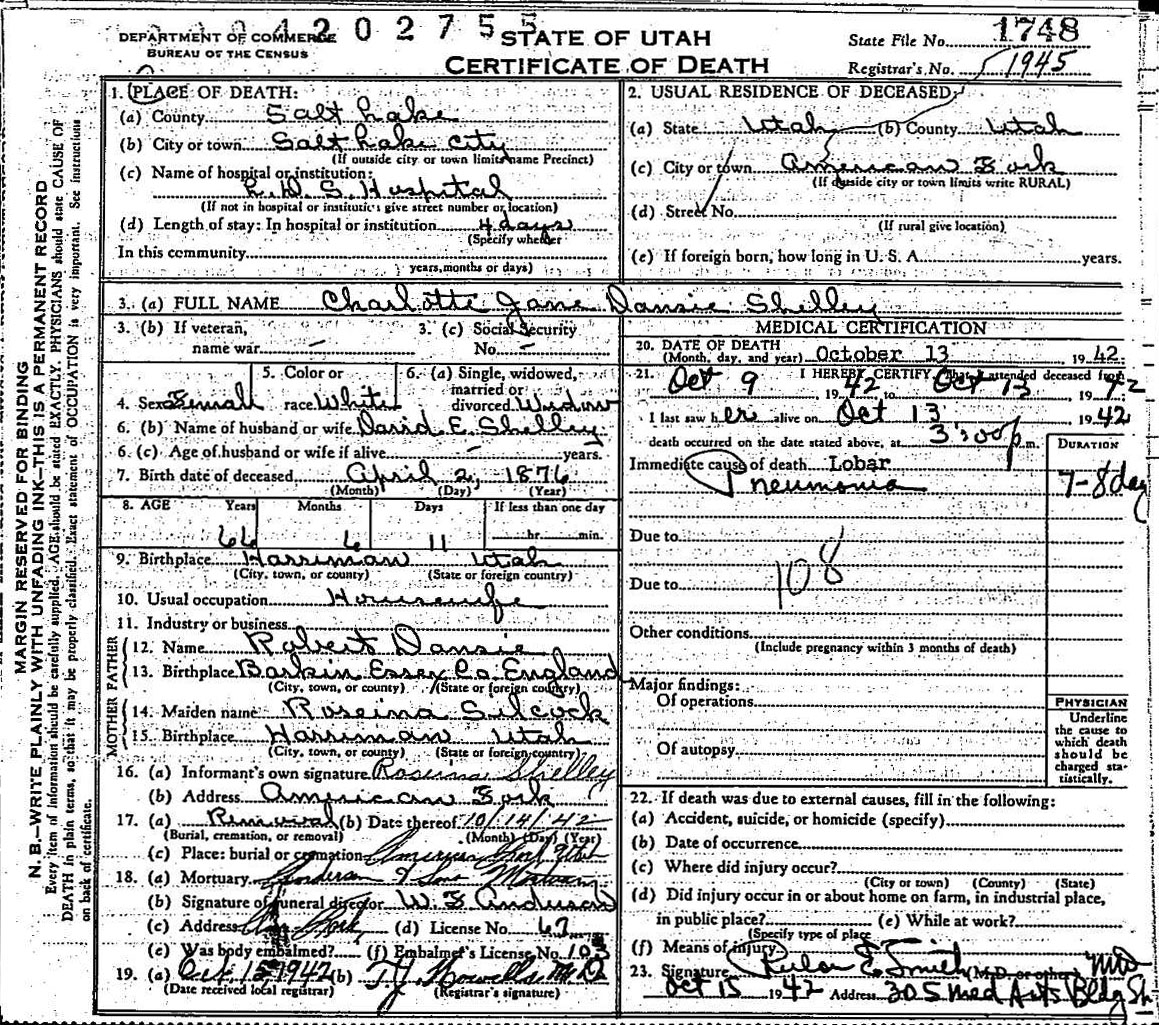 DEPARTMENT OF COMMERCE
BUREAU OF THE CENSUS
202755
STATE OF UTAH
CERTIFICATE OF DEATH
State File No. 1748
Registrar's No. 1945
MARGIN RESERVED FOR BINDING
N. B.—WRITE PLAINLY WITH UNFADING INK—THIS IS A PERMANENT RECORD
Every item of information should be carefully supplied. AGE should be stated EXACTLY. PHYSICIANS should state CAUSE OF
DEATH in plain terms, so that it may be properly classified. Exact statement of OCCUPATION is very important. See instructions
on back of certificate.
1. PLACE OF DEATH:
(a) County Salt Lake
(b) City or town Salt Lake City
(If outside city or town limits name Precinct)
(c) Name of hospital or institution:
S. Hospital
(If not in hospital or institution give street number or location)
(d) Length of stay: In hospital or institution 4 days
(Specify whether
In this community
years, months or days)
2. USUAL RESIDENCE OF DECEASED:
(a) State Utah (b) County Utah
(c) City or town American Fork
(If outside city or town limits write RURAL)
(d) Street No.
(If rural give location)
(e) If foreign born, how long in U. S. A. years.
3. (a) FULL NAME Charlotte Jane Dansie Shelley
3. (b) If veteran,
name war -
3. (c) Social Security
No. -
4. Sex Femail
5. Color or
race White
6. (a) Single, widowed,
married or
divorced Widow
6. (b) Name of husband or wife David E. Shelley
6. (c) Age of husband or wife if alive - years.
7. Birth date of deceased April 2, 1876
(Month) (Day) (Year)
8. AGE Years Months Days If less than one day
66 6 11 hr. min.
9. Birthplace Harriman Utah
(City, town, or county) (State or foreign country)
10. Usual occupation Housewife
11. Industry or business
FATHER
12. Name Robert Dansie
13. Birthplace Barkin Essex Co. England
(City, town, or county) (State or foreign country)
MOTHER
14. Maiden name Roseina Silcock
15. Birthplace Harriman Utah
(City, town, or county) (State or foreign country)
16. (a) Informant's own signature Roseina Shelley
(b) Address American Fork
17. (a) Removal (b) Date thereof 10/14/42
(Burial, cremation, or removal) (Month) (Day) (Year)
(c) Place: burial or cremation American Fork Utah
18. (a) Mortuary Anderson & Sons Mortuary
(b) Signature of funeral director W. F. Anderson
(c) Address Am. Fork, (d) License No. 67
(e) Was body embalmed? (f) Embalmer's License No. 103
19. (a) Oct. 15 1942 (b) T.J. Howells M.D.
(Date received local registrar) (Registrar's signature)
MEDICAL CERTIFICATION
20. DATE OF DEATH
(Month, day, and year) October 13 1942.
21. I HEREBY CERTIFY, That I attended deceased from
Oct 9 1942 to Oct 13 1942
I last saw her alive on Oct 13 1942
death occurred on the date stated above, at 3:00 p m.
DURATION
Immediate cause of death Lobar
Pneumonia 7-8 day
Due to
108
Due to
Other conditions
(Include pregnancy within 3 months of death)
Major findings:
Of operations
Of autopsy
PHYSICIAN
Underline
the cause to
which death
should be
charged sta-
tistically.
22. If death was due to external causes, fill in the following:
(a) Accident, suicide, or homicide (specify)
(b) Date of occurrence
(c) Where did injury occur?
(City or town) (County) (State)
(d) Did injury occur in or about home on farm, in industrial place,
in public place? (e) While at work?
(Specify type of place
(f) Means of injury
23. Signature Rulon E. Smith (M.D. or other) MD
Oct 15 1942 Address 305 Med Arts Bldg